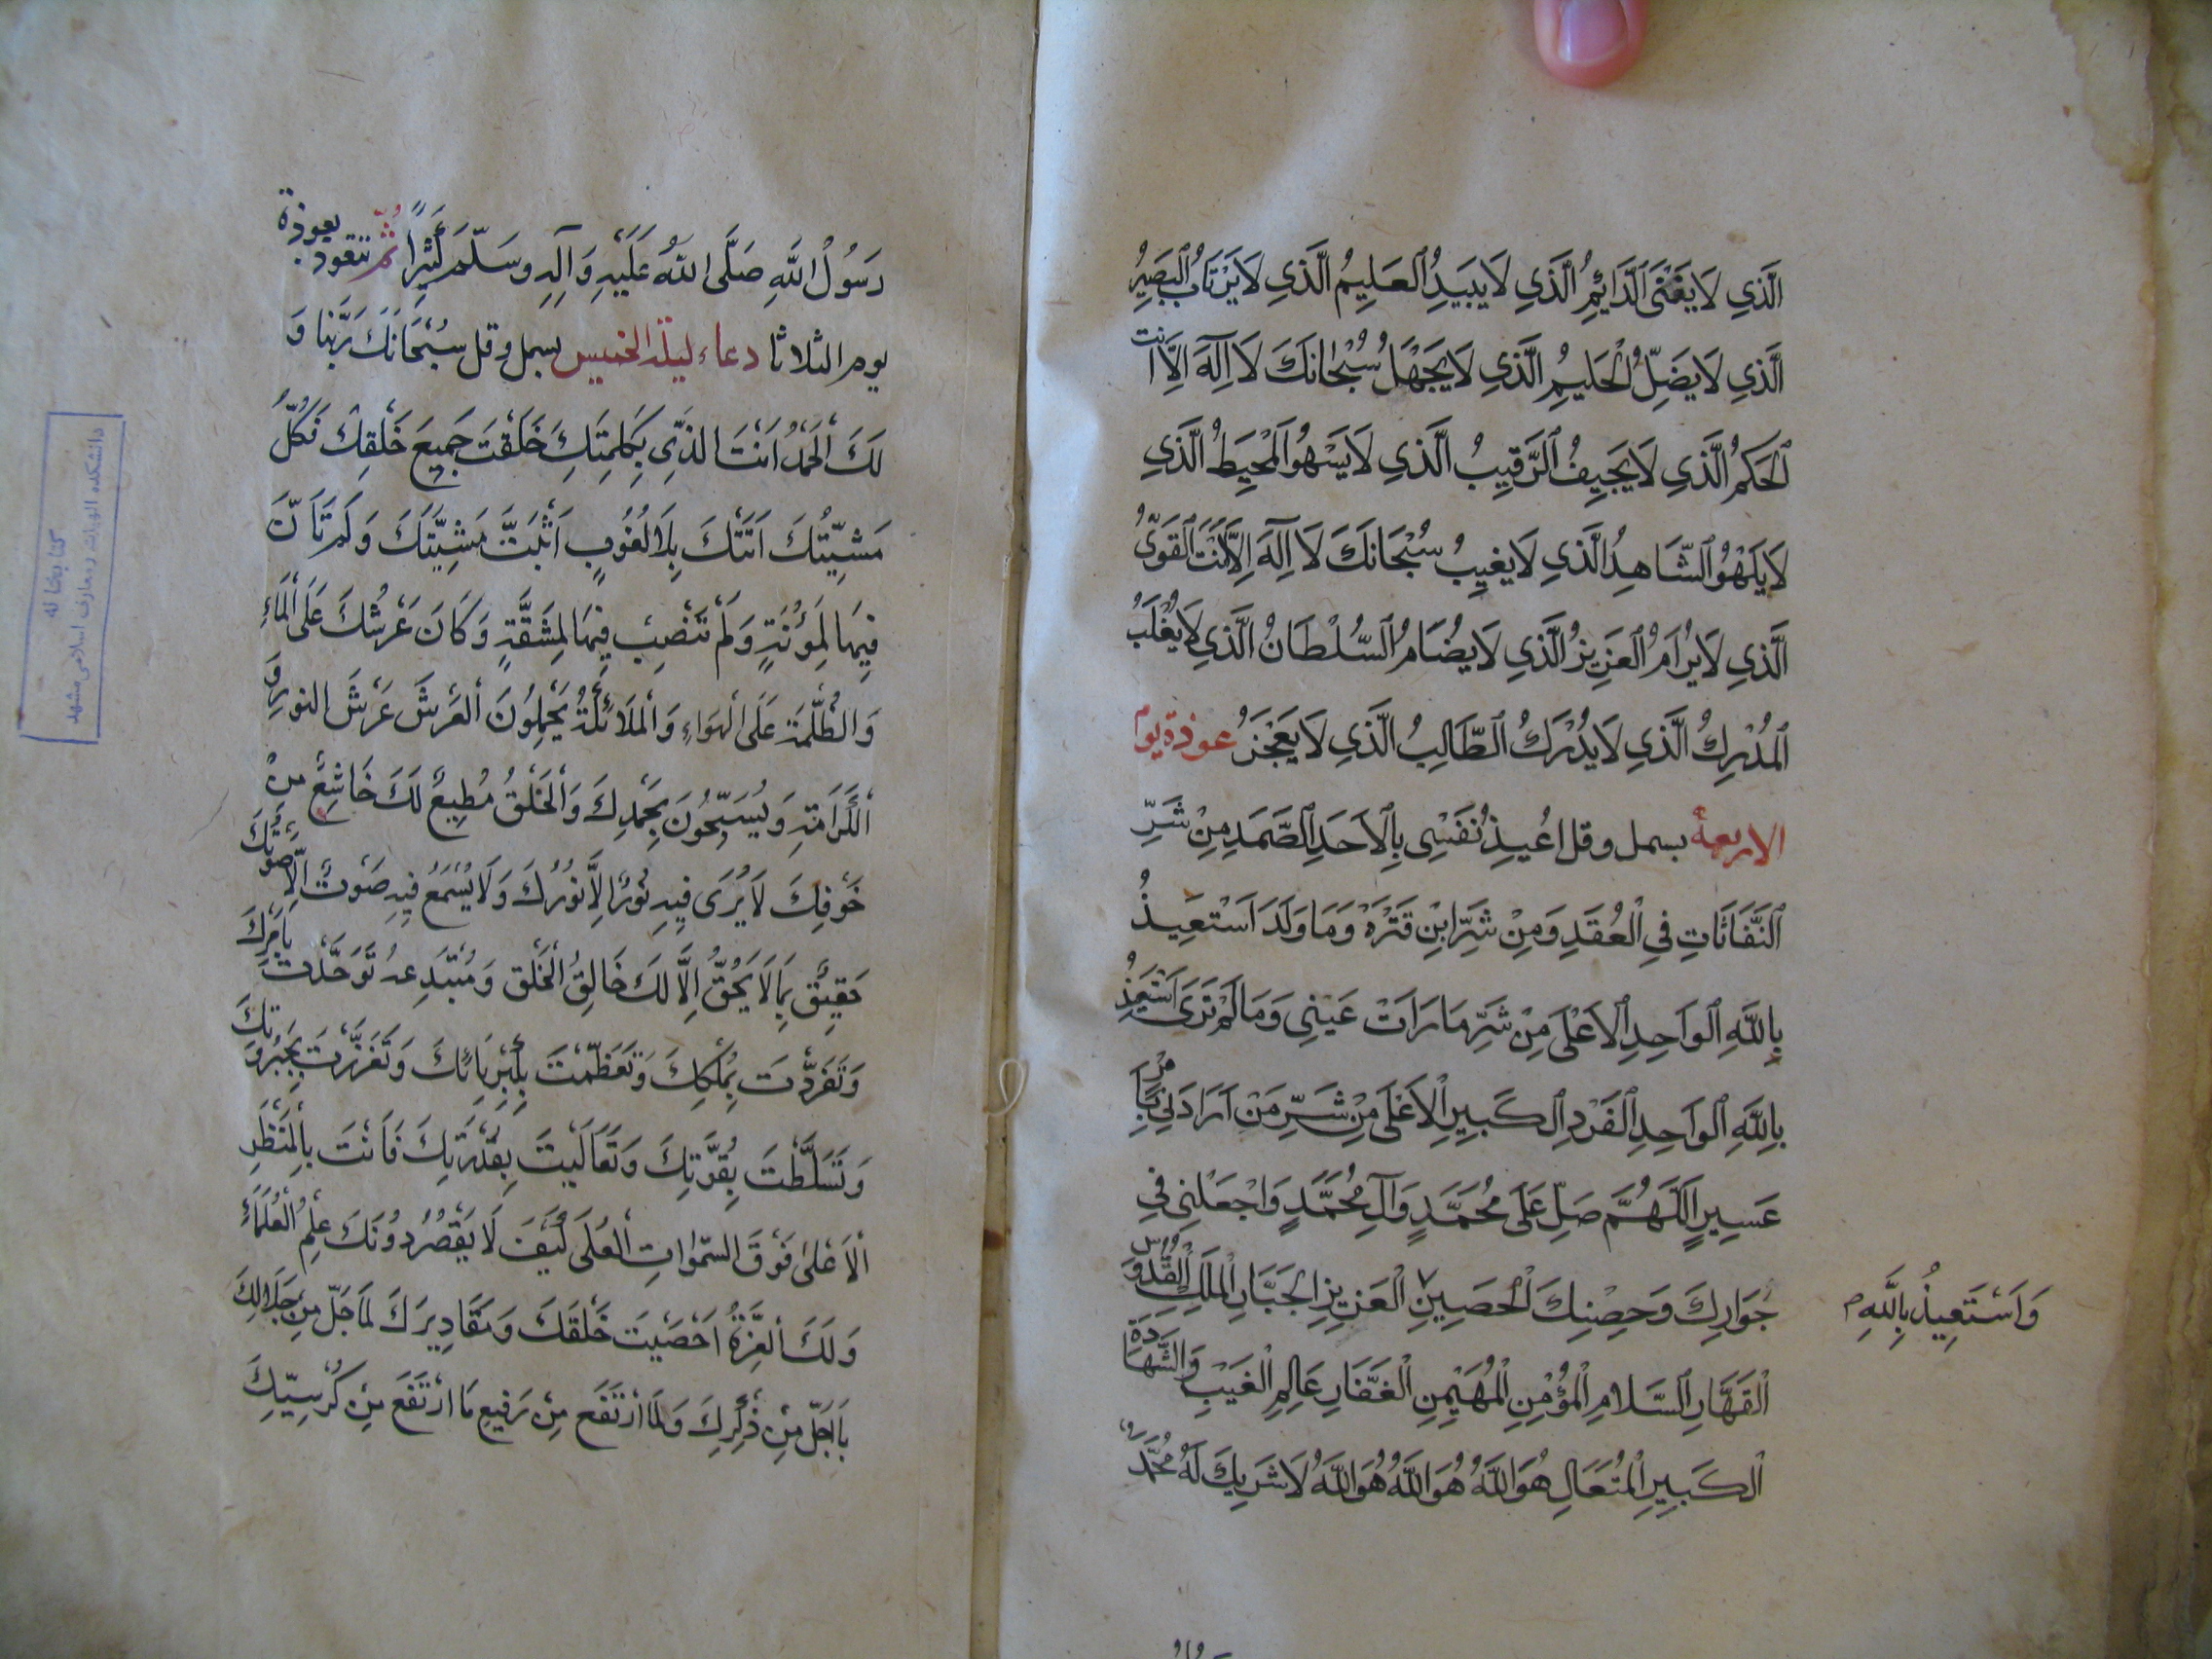 الَّذِي لَا يَفْنَى الدَّائِمُ الَّذِي لَا يَبِيدُ الْعَلِيمُ الَّذِي لَا يَرْتَابُ الْبَصِيرُ
الَّذِي لَا يَضِلُّ الْحَلِيمُ الَّذِي لَا يَجْهَلُ سُبْحَانَكَ لَا اِلَهَ اِلَّا اَنت
الْحَكَمُ الَّذِي لَا يَحِيفُ الرَّقِيبُ الَّذِي لَا يَسْهُو الْمُحِيطُ الَّذِي
لَا يَلْهُو الشَّاهِدُ الَّذِي لَا يَغِيبُ سُبْحَانَكَ لَا اِلَهَ اِلَّا اَنْتَ الْقَوِىُّ
الَّذِي لَا يُرَامُ الْعَزِيزُ الَّذِي لَا يُضَامُ السُّلْطَانُ الَّذِي لَا يُغْلَبُ
الْمُدْرِكُ الَّذِي لَا يُدْرَكُ الطَّالِبُ الَّذِي لَا يَعْجَزُ عوذة يوم
الاربعة بسمل وقل اُعِيذُ نَفْسِى بِالْاَحَدِ الصَّمَدِ مِنْ شَرِّ
النَّفَّاثَاتِ فِي الْعُقَدِ وَمِنْ شَرِّ ابْنِ قَتَرَةَ وَمَا وَلَدَ اَسْتَعِيذُ
بِاللَّهِ الْوَاحِدِ الْاَعْلَى مِنْ شَرِّ مَا رَاَتْ عَيْنِي وَمَا لَمْ تَرَى اَسْتَعِيذُ
بِاللَّهِ الْوَاحِدِ الْفَرْدِ الْكَبِيرِ الْاَعْلَى مِنْ شَرِّ مَنْ اَرَادَنِي بِاَمْرٍ
عَسِيرٍ اَللَّهُمَّ صَلِّ عَلَى مُحَمَّدٍ وَآلِ مُحَمَّدٍ وَاجْعَلْنِي فِي
جِوَارِكَ وَحِصْنِكَ الْحَصِينِ الْعَزِيزِ الْجَبَّارِ الْمَلِكِ الْقُدُّوسِ
وَاَسْتَعِيذُ بِاللَّهِ
الْقَهَّارِ السَّلَامِ الْمُؤْمِنِ الْمُهَيْمِنِ الْغَفَّارِ عَالِمِ الْغَيْبِ وَالشَّهَادَةِ
الْكَبِيرِ الْمُتَعَالِ هُوَ اللَّهُ هُوَ اللَّهُ هُوَ اللَّهُ لَا شَرِيكَ لَهُ مُحَمَّدٌ
رَسُولُ اللَّهِ صَلَّى اللَّهُ عَلَيْهِ وَآلِهِ وَسَلَّمَ كَثِيرًا ثُمَّ تتعوذ بعوذة
يوم الثلاثا دعاء ليلة الخميس بسمل وقل سُبْحَانَكَ رَبَّنَا وَ
لَكَ الْحَمْدُ اَنْتَ الَّذِي بِكَلِمَتِكَ خَلَقْتَ جَمِيعَ خَلْقِكَ فَكُلُّ
مَشِيَّتُكَ اَتَتْكَ بِلَا لُغُوبٍ اَثْبَتَّ مَشِيَّتَكَ وَلَمْ تَاَنَّ
فِيهَا لِمَؤُنَةٍ وَلَمْ تَنْصِبْ فِيهَا لِمَشَقَّةٍ وَكَانَ عَرْشُكَ عَلَى الْمَاءِ
وَالظُّلْمَةُ عَلَى الْهَوَاءِ وَالْمَلَائِكَةُ يَحْمِلُونَ الْعَرْشَ عَرْشَ النُّورِ وَ
الْكَرَامَةِ وَيُسَبِّحُونَ بِحَمْدِكَ وَالْخَلْقُ مُطِيعٌ لَكَ خَاشِعٌ مِنْ
خَوْفِكَ لَا يُرَى فِيهِ نُورٌ اِلَّا نُورُكَ وَلَا يُسْمَعُ فِيهِ صَوْتٌ اِلَّا صَوْتُكَ
حَقِيقٌ بِمَا لَا يَحُقُّ اِلَّا لَكَ خَالِقُ الْخَلْقِ وَمُبْتَدِعُهُ تَوَحَّدْتَ بِاَمْرِكَ
وَتَفَرَّدْتَ بِمُلْكِكَ وَتَعَظَّمْتَ بِكِبْرِيَائِكَ وَتَعَزَّزْتَ بِجَبَرُوتِكَ
وَتَسَلَّطْتَ بِقُوَّتِكَ وَتَعَالَيْتَ بِقُدْرَتِكَ فَاَنْتَ بِالْمَنْظَرِ
الْاَعْلَى فَوْقَ السَّمَوَاتِ الْعُلَى كَيْفَ لَا يَقْصُرُ دُونَكَ عِلْمُ الْعُلَمَاءِ
وَلَكَ الْعِزَّةُ اَحْصَيْتَ خَلْقَكَ وَمَقَادِيرَكَ لِمَا جَلَّ مِنْ جَلَالِكَ
بِاَجَلِّ مِنْ ذِكْرِكَ وَلِمَا ارْتَفَعَ مِنْ رَفِيعِ مَا ارْتَفَعَ مِنْ كُرْسِيِّكَ
كتابخانه
دانشكده الهيات و معارف اسلامى مشهد